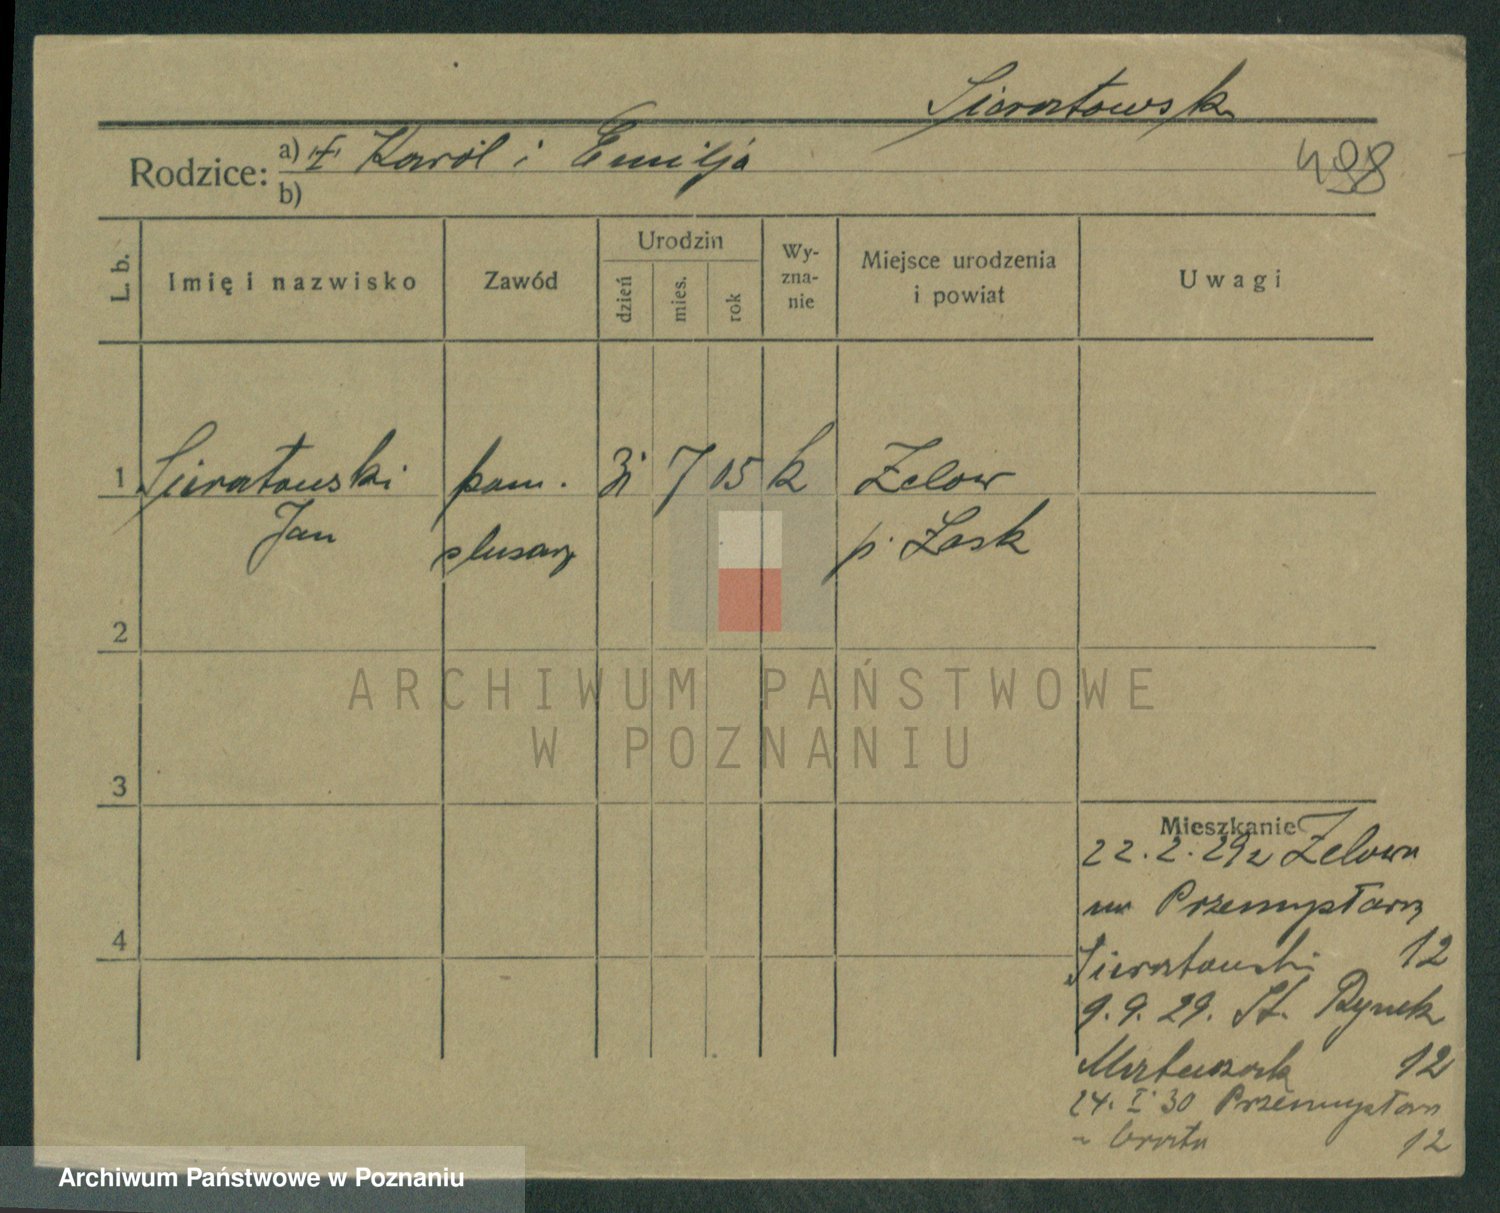 Sieratowsk
Rodzice: a) I Karól i Emilja
b)
498
L. b.
Imię i nazwisko
Zawód
Urodzin
dzień
mies.
rok
Wy-
zna-
nie
Miejsce urodzenia
i powiat
Uwagi
1 Sieratowski pom. 31 7 15 k Zelow
Jan slusarz p. Łask
2
3
4
ARCHIWUM PAŃSTWOWE
W POZNANIU
Mieszkanie
22. 2. 29 z Zelowa
na Przemysłową
Sieratowski 12
9. 9. 29. St. Rynek
Matuszak 12
24. I 30 Przemysłowa
12
Archiwum Państwowe w Poznaniu